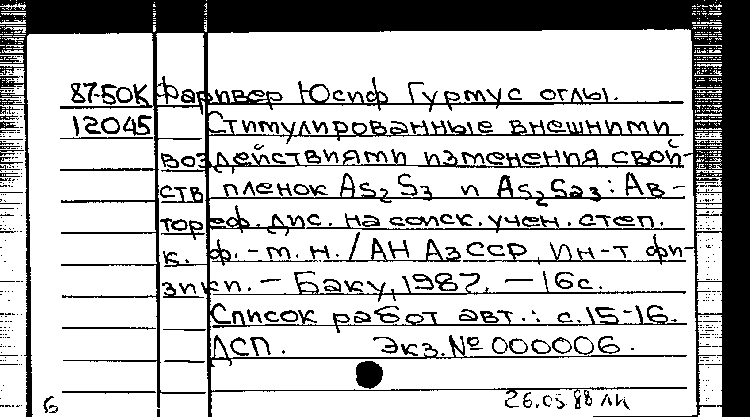 87-50К Фаривер Юсиф Гурмус оглы.
12045 Стимулированные внешними
воздействиями изменения свой-
ств пленок As₂S₃ и As₂Se₃: Ав-
тореф. дис. на соиск. учен. степ.
к. ф.-м. н. / АН АзССР, Ин-т фи-
зики. – Баку, 1987. – 16с.
Список работ авт.: с.15-16.
ДСП. Экз.№ 000006.
6 26.05.88 ЛК